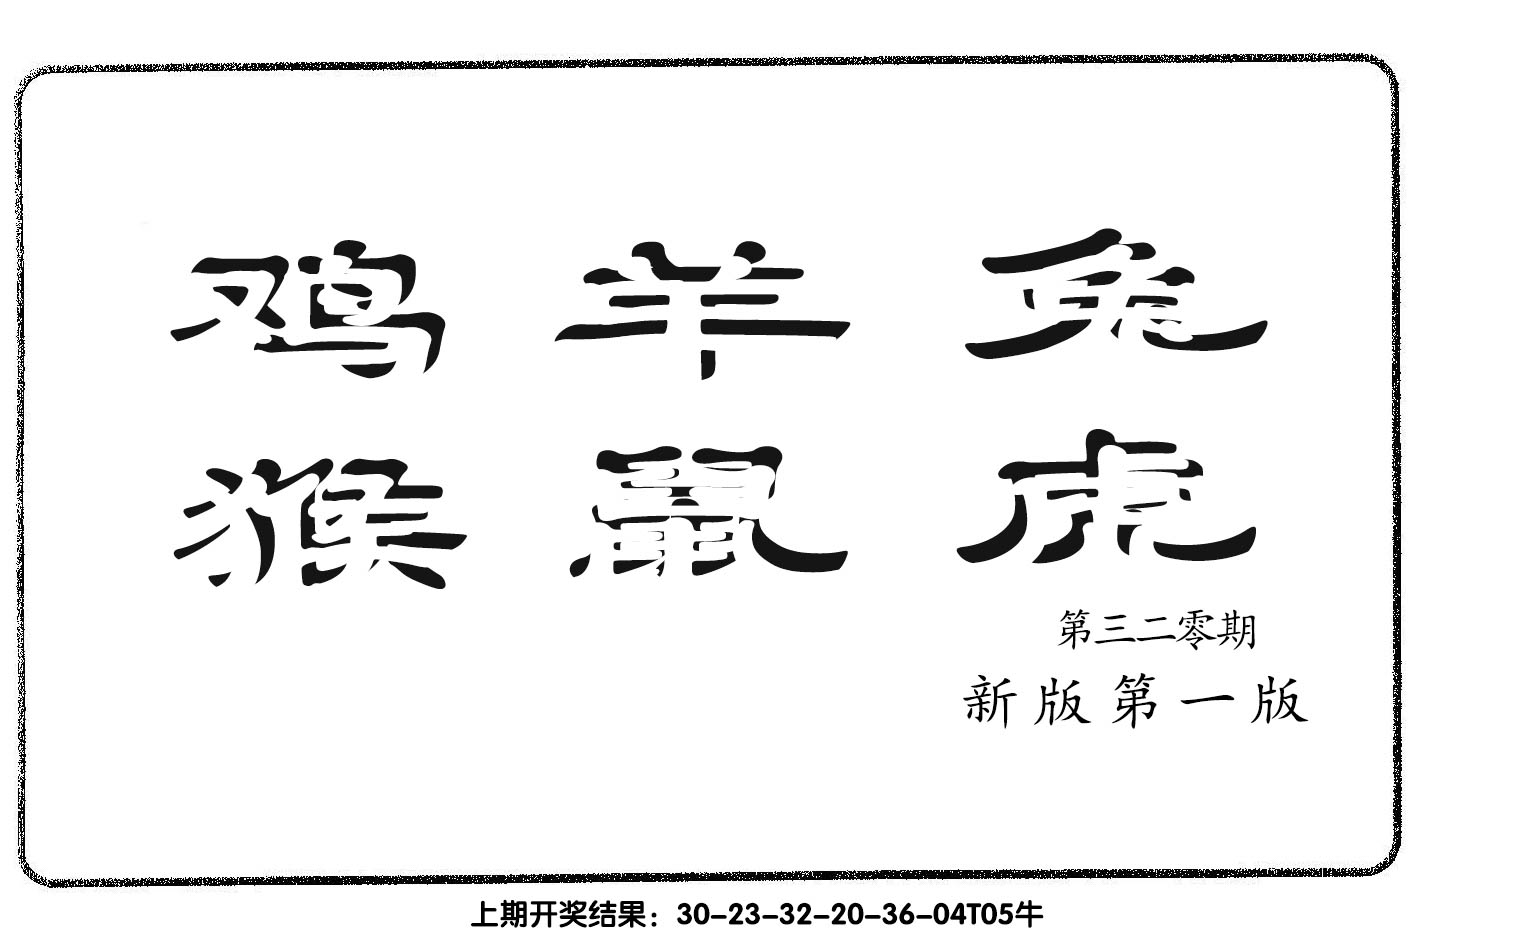 鸡 羊 兔
猴 鼠 虎
第三二零期
新版第一版
上期开奖结果：30-23-32-20-36-04T05牛